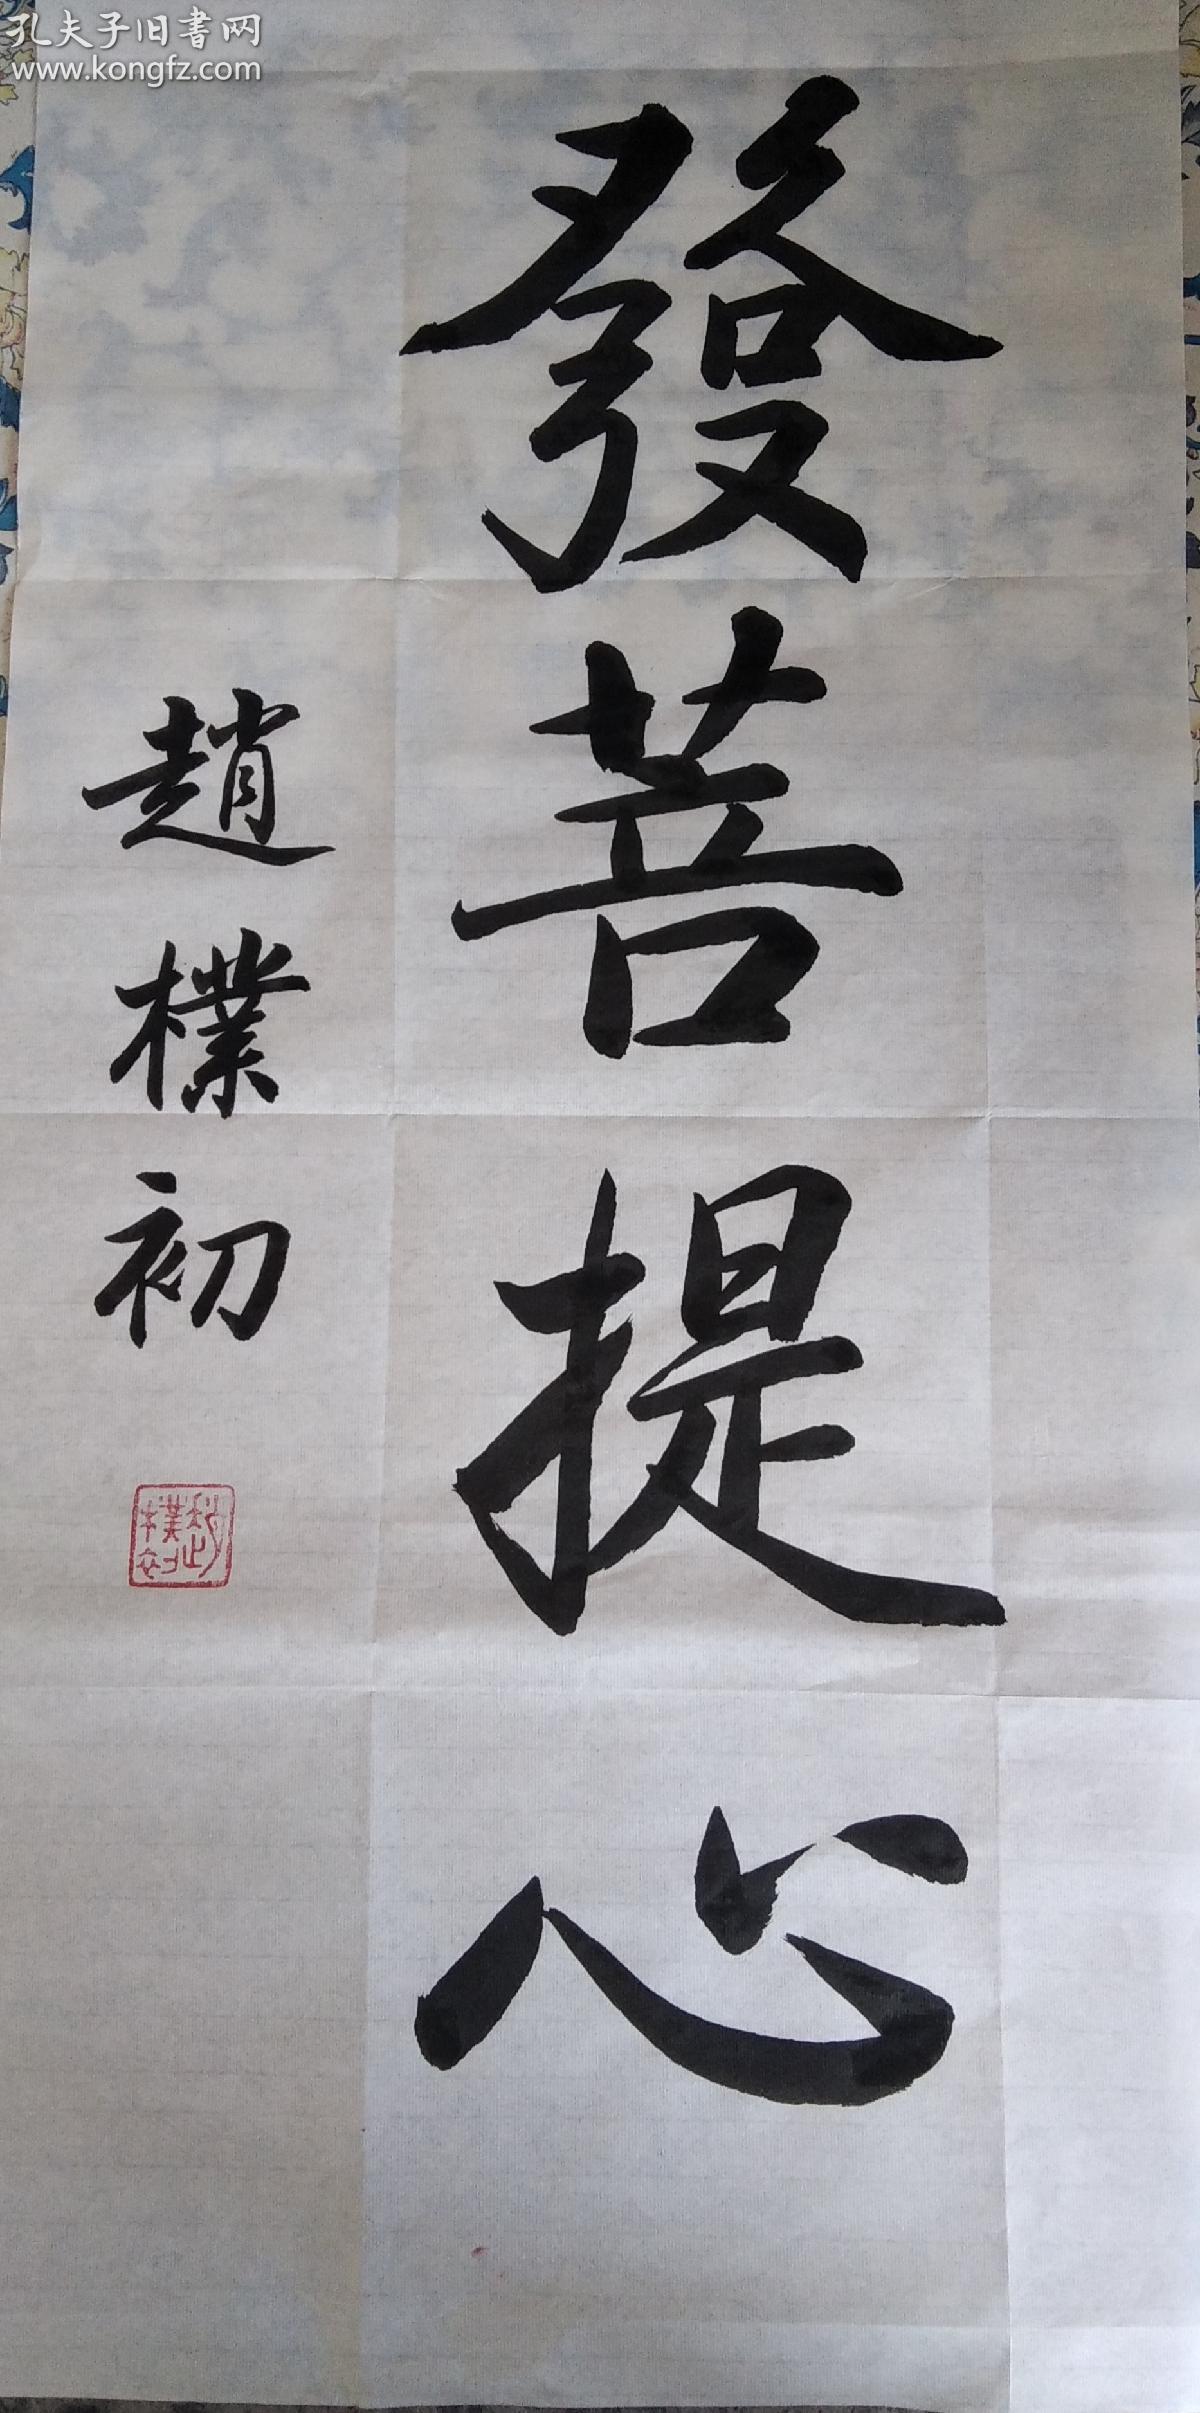 孔夫子旧書网
www.kongfz.com
發菩提心
趙樸初
趙樸初